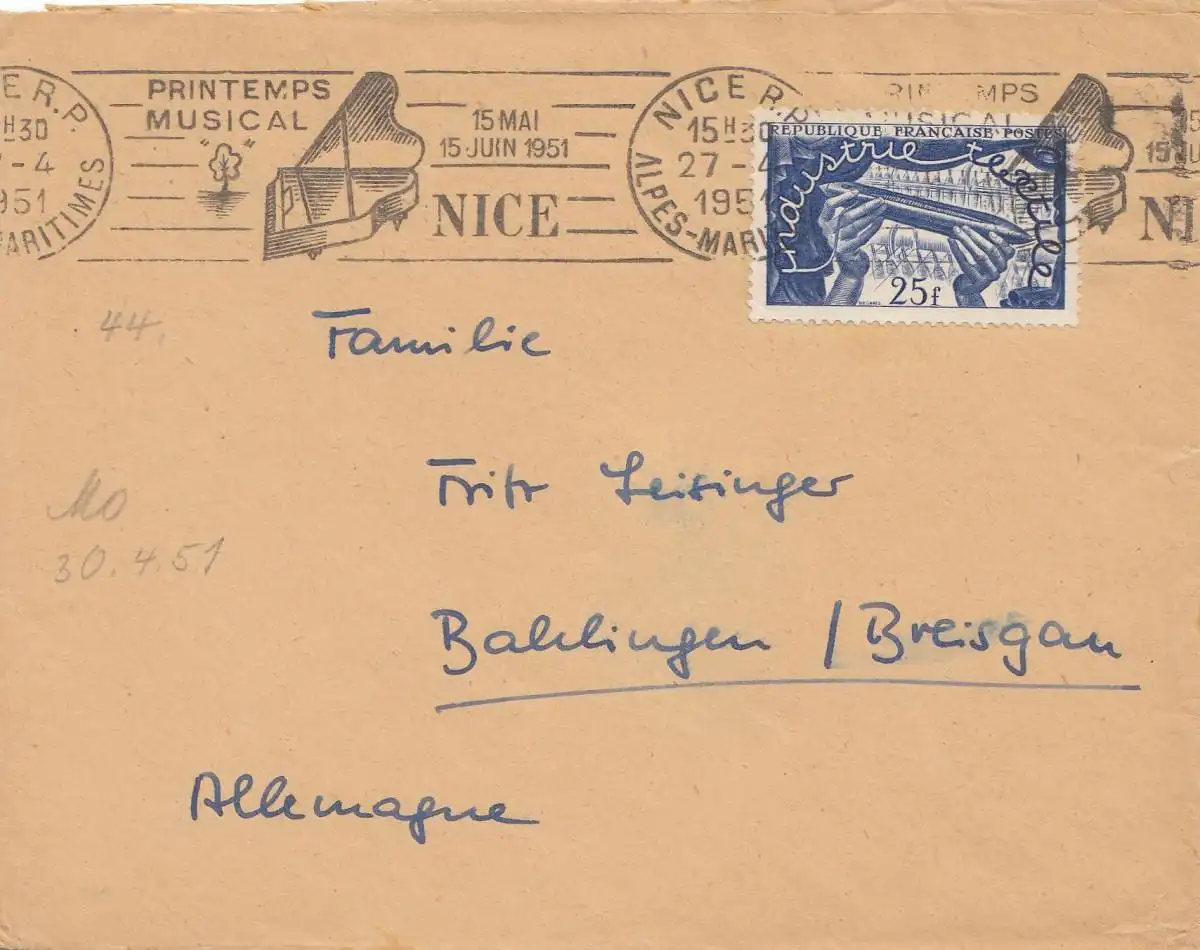 E R.P.
H30
-4
951
ARITIMES
PRINTEMPS
MUSICAL
15 MAI
15 JUIN 1951
NICE
NICE R.P.
15H30
27-4
1951
ALPES-MARI
MPS
MUSICAL
15
15 JU
NI
REPUBLIQUE FRANÇAISE POSTES
industrie textile
25f
44.
Familie
Fritz Leisinger
Mo
30.4.51
Bahlingen / Breisgau
Allemagne